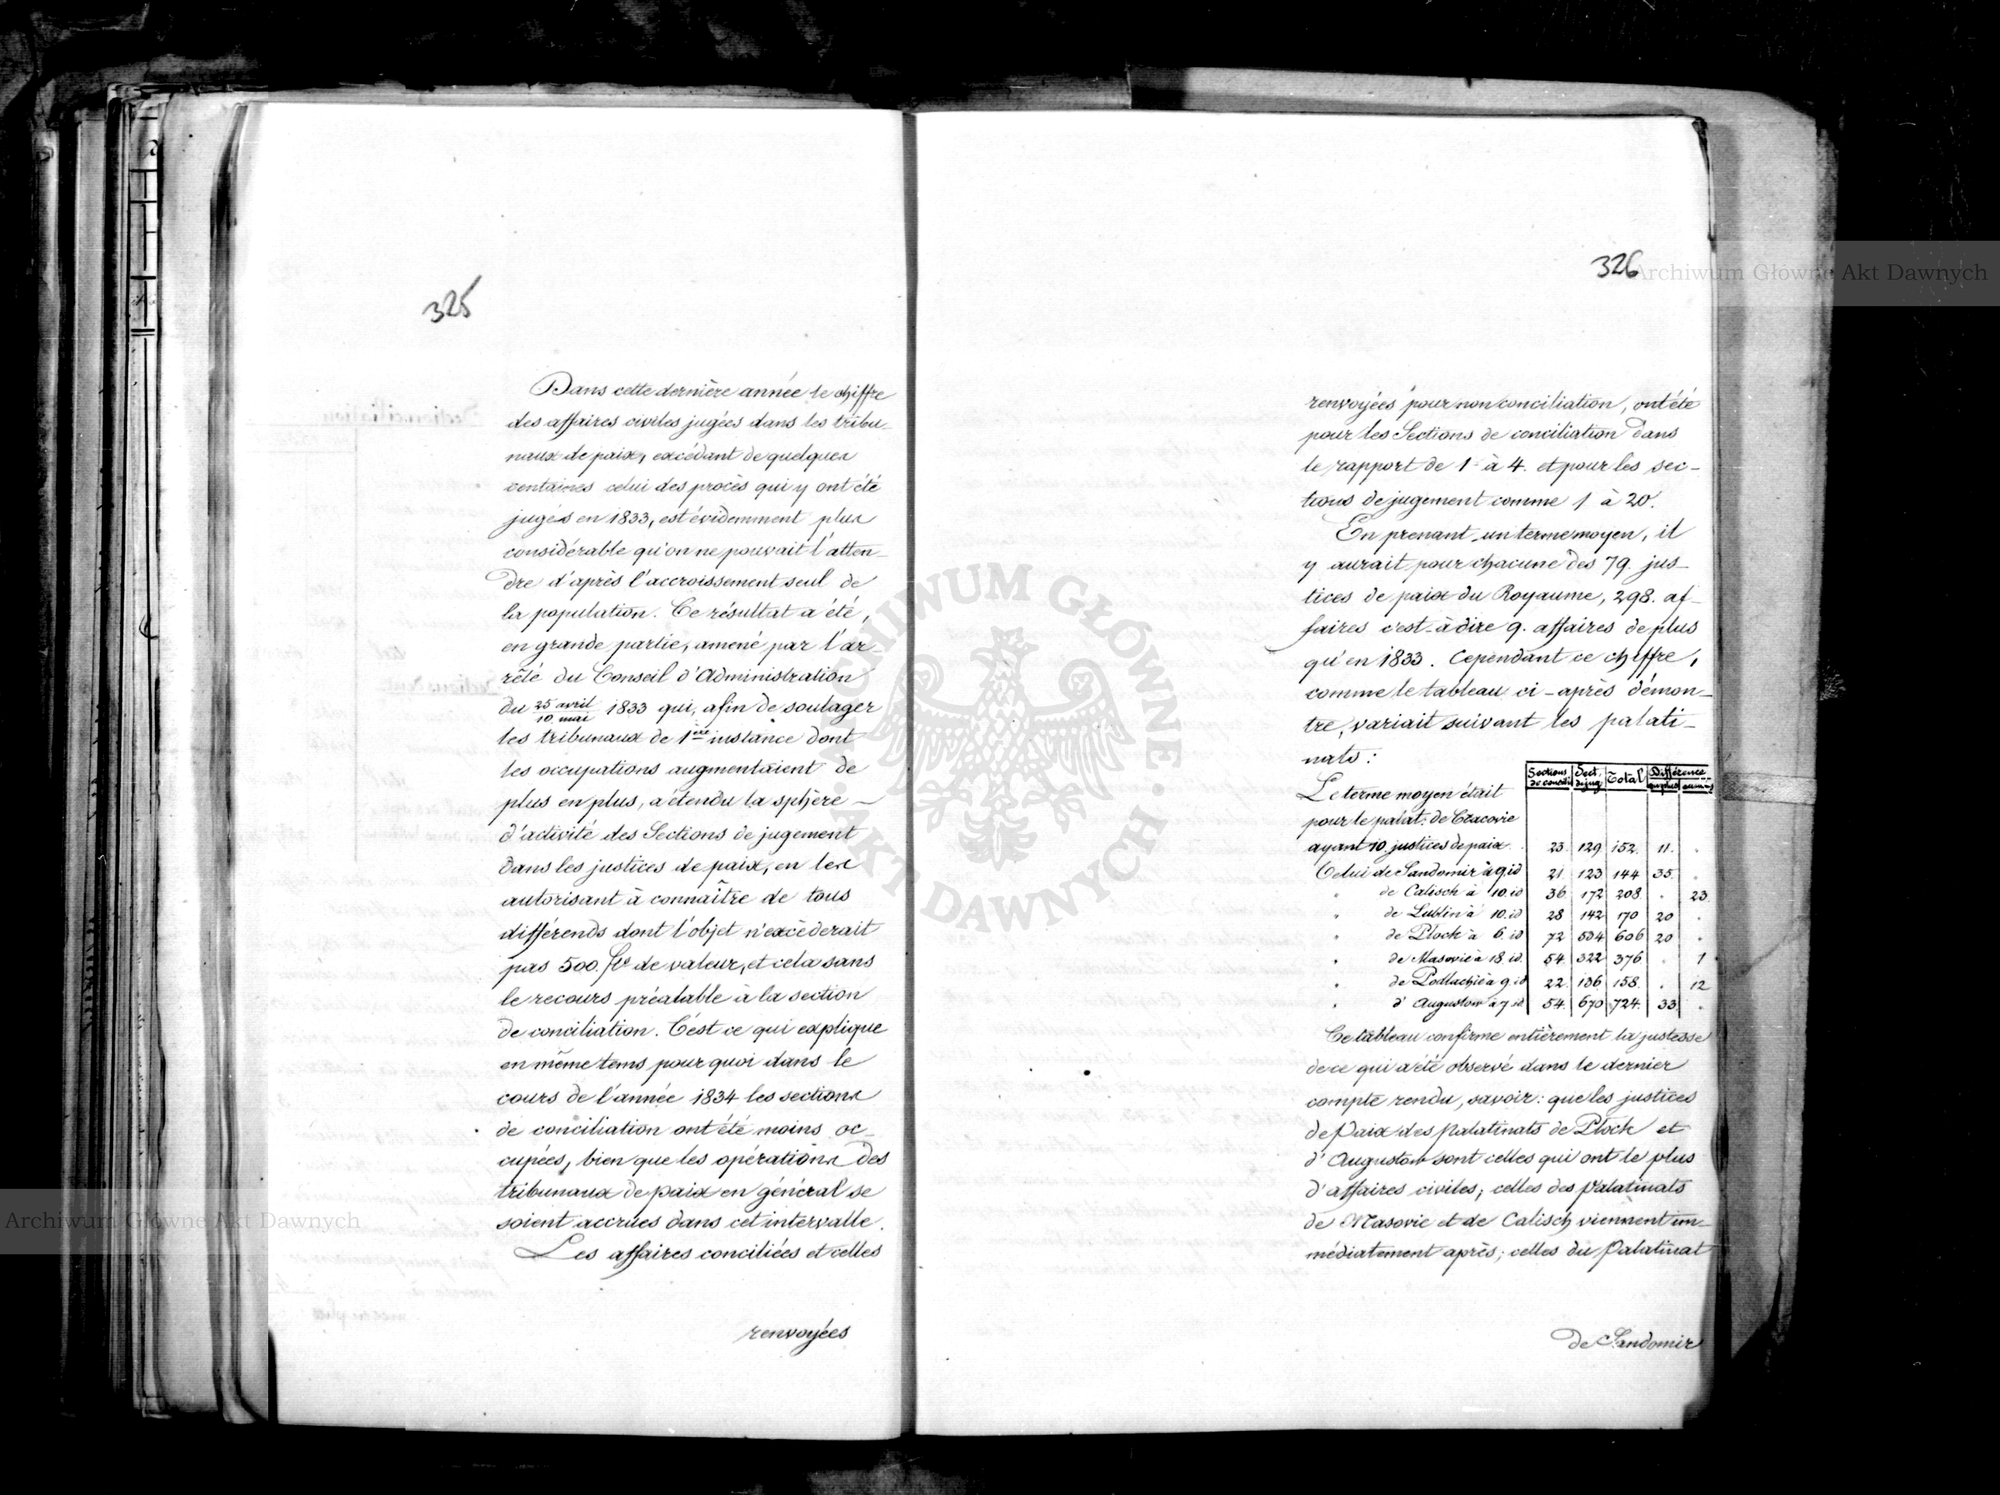 325
Dans cette dernière année le chiffre
des affaires civiles jugées dans les tribu-
naux de paix, excédant de quelques
centaines celui des procès qui y ont été
jugés en 1833, est évidemment plus
considérable qu'on ne pouvait l'atten-
dre d'après l'accroissement seul de
la population. Ce résultat a été,
en grande partie, amené par l'ar-
rêté du Conseil d'Administration
du 25 avril/10 mai 1833 qui, afin de soulager
les tribunaux de 1ère instance dont
les occupations augmentaient de
plus en plus, a étendu la sphère
d'activité des Sections de jugement
dans les justices de paix, en les
autorisant à connaître de tous
différends dont l'objet n'excèderait
pas 500. fl. de valeur, et cela sans
le recours préalable à la section
de conciliation. C'est ce qui explique
en même tems pour quoi dans le
cours de l'année 1834 les sections
de conciliation ont été moins oc-
cupées, bien que les opérations des
tribunaux de paix en général se
soient accrues dans cet intervalle.
Les affaires conciliées et celles
renvoyées
326
renvoyées pour non conciliation, ont été
pour les Sections de conciliation dans
le rapport de 1 à 4. et pour les sec-
tions de jugement comme 1 à 20.
En prenant un terme moyen, il
y aurait pour chacune des 79. jus-
tices de paix du Royaume, 298. af-
faires c'est-à dire 9. affaires de plus
qu'en 1833. Cependant ce chiffre,
comme le tableau ci-après démon-
tre, variait suivant les palati-
nats:
Sections de concil. Sect. de jug. Total Différence en plus en moins
Le terme moyen était
pour le palat: de Cracovie
ayant 10 justices de paix. 23. 129 152. 11. .
Celui de Sandomir à 9. id 21 123 144 35. .
" de Calisch à 10. id 36 172 208 . 23.
" de Lublin à 10. id 28 142 170 20 .
" de Plock à 6. id 72 534 606 20 .
" de Masovie à 18 id. 54. 322 376 . 1
" de Podlachie à 9 id 22. 136 158. . 12
" d'Augustow à 7 id 54. 670 724. 33 .
Ce tableau confirme entièrement la justesse
de ce qui a été observé dans le dernier
compte rendu, savoir: que les justices
de Paix des Palatinats de Plock et
d'Augustow sont celles qui ont le plus
d'affaires civiles; celles des Palatinats
de Masovie et de Calisch viennent im-
médiatement après; celles du Palatinat
de Sandomir
Archiwum Główne Akt Dawnych
Archiwum Główne Akt Dawnych
ARCHIWUM GŁÓWNE AKT DAWNYCH